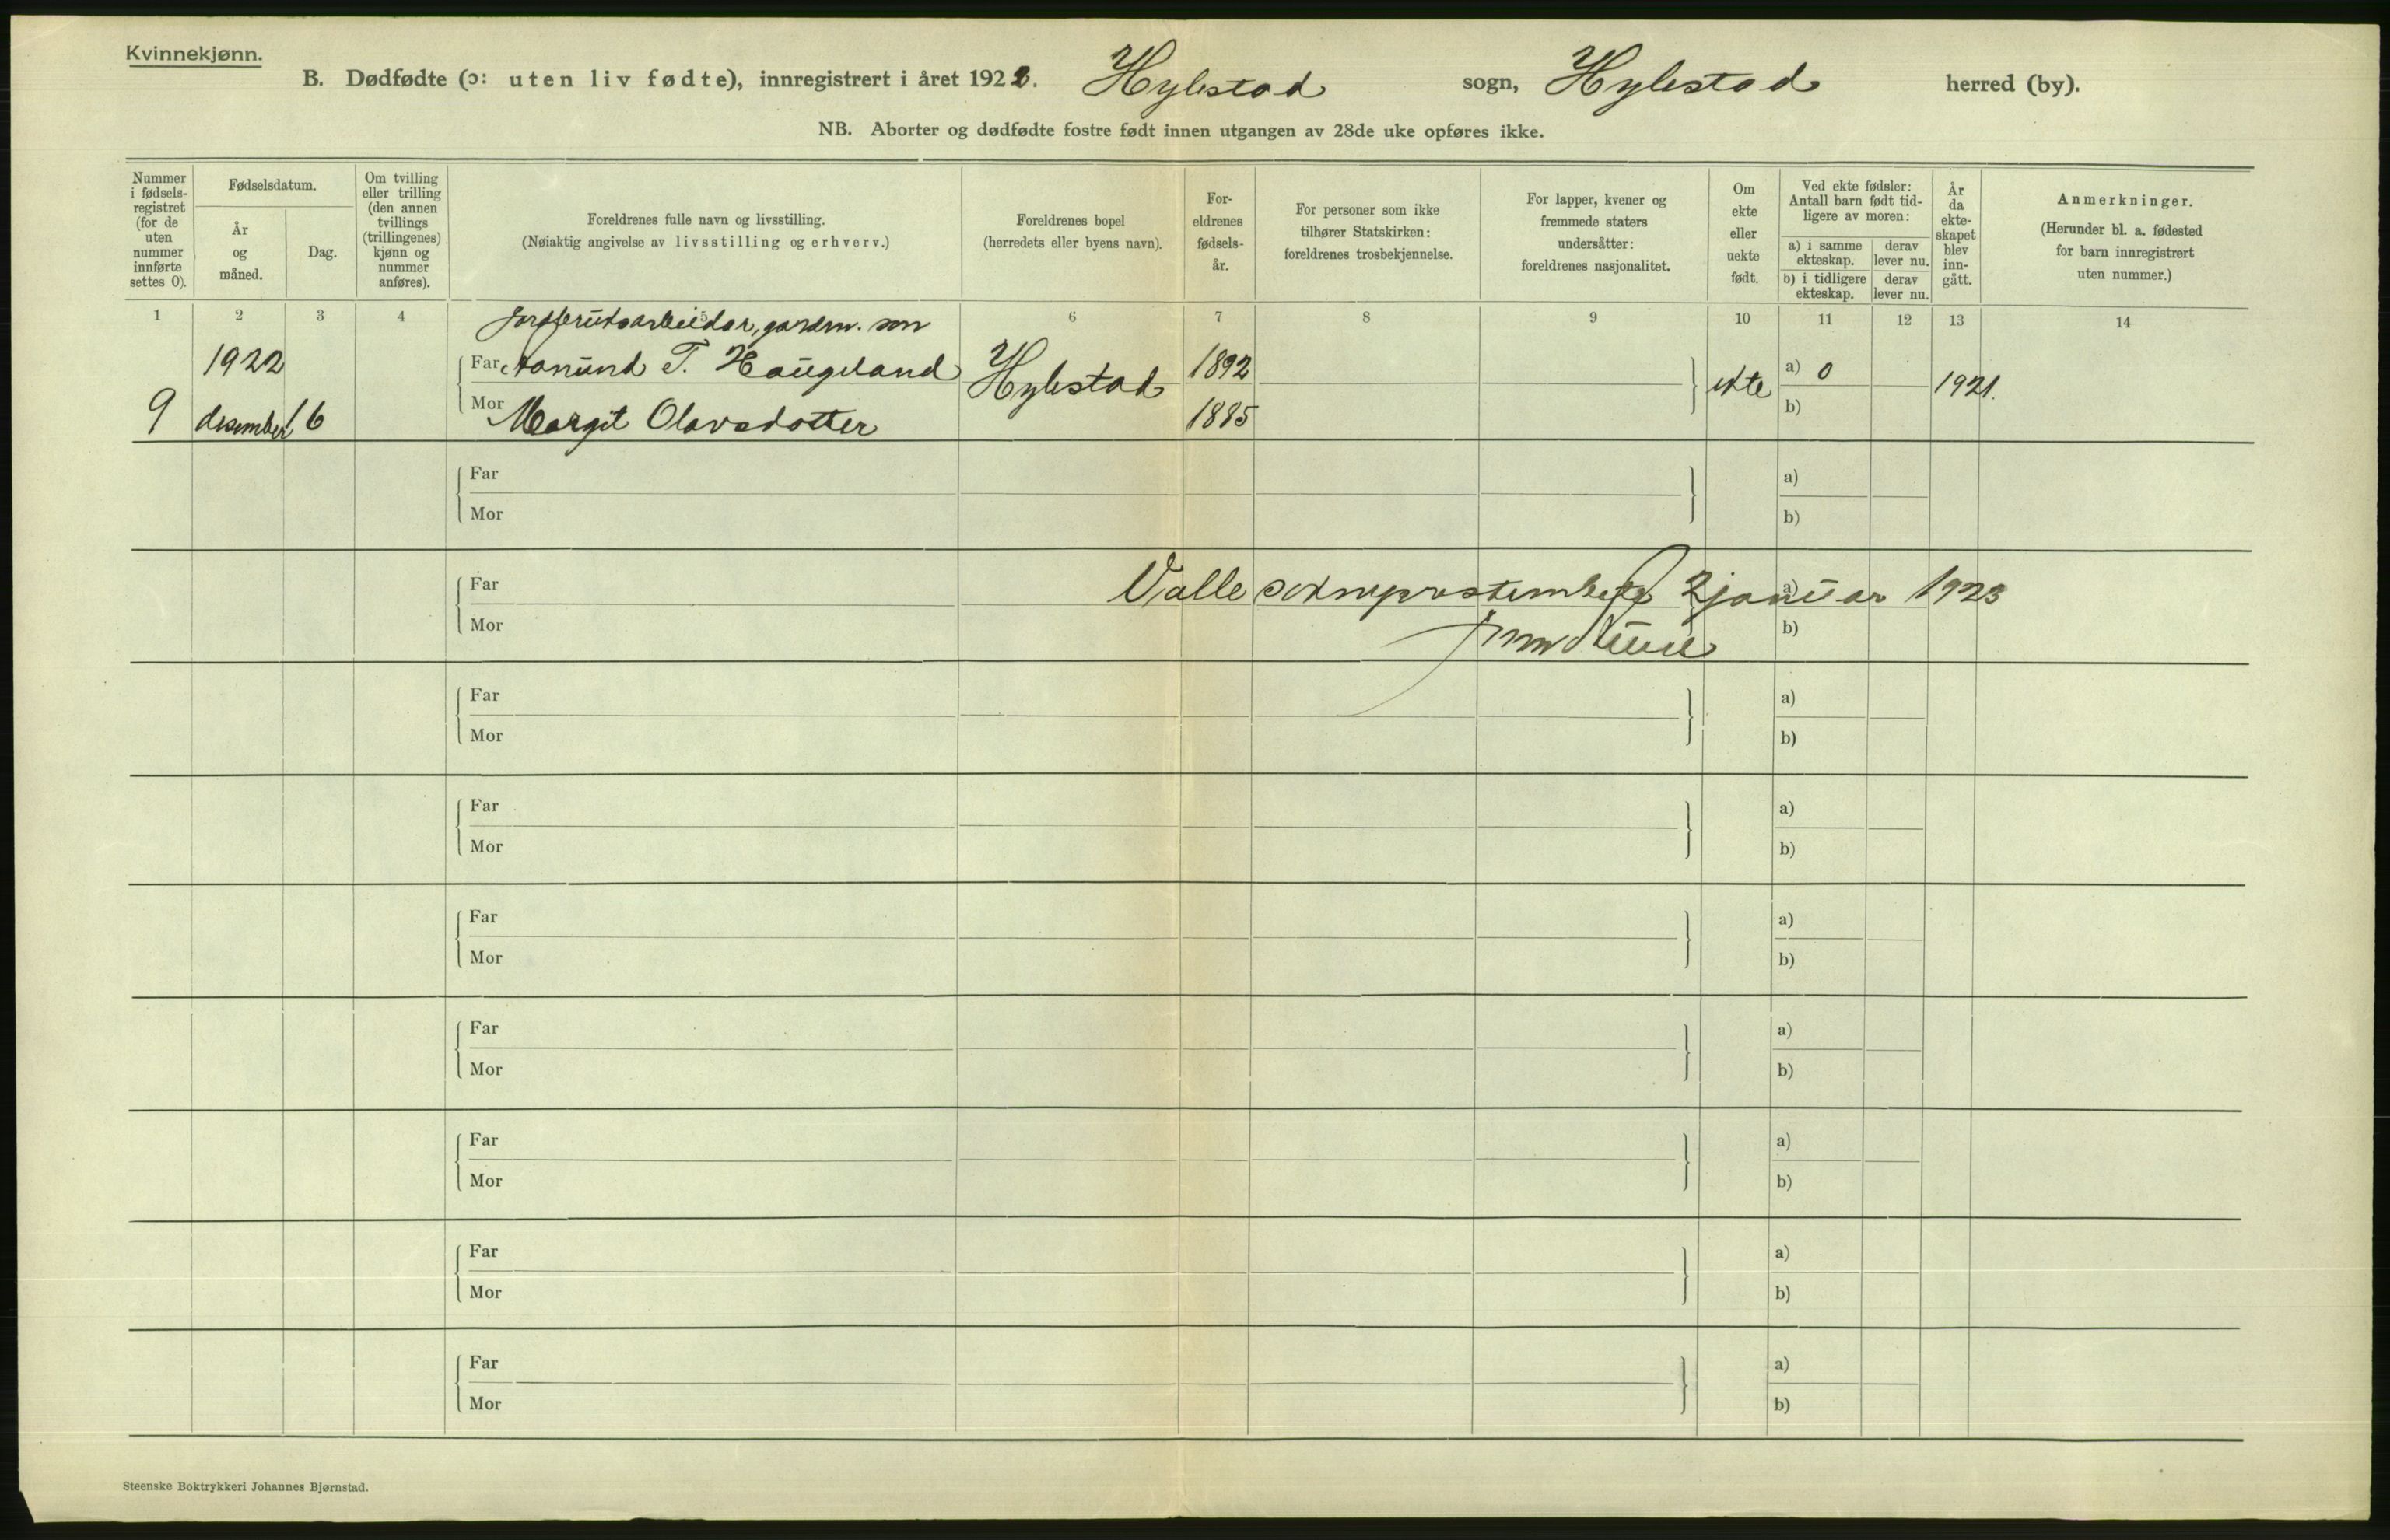 Kvinnekjønn.
B. Dødfødte (ɔ: uten liv fødte), innregistrert i året 1922. Hylestad sogn, Hylestad herred (by).
NB. Aborter og dødfødte fostre født innen utgangen av 28de uke opføres ikke.
Nummer i fødsels-registret (for de uten nummer innførte settes 0).
Fødselsdatum.
År og måned.
Dag.
Om tvilling eller trilling (den annen tvillings (trillingenes) kjønn og nummer anføres).
Foreldrenes fulle navn og livsstilling.
(Nøiaktig angivelse av livsstilling og erhverv.)
Foreldrenes bopel
(herredets eller byens navn).
For-eldrenes fødsels-år.
For personer som ikke tilhører Statskirken: foreldrenes trosbekjennelse.
For lapper, kvener og fremmede staters undersåtter: foreldrenes nasjonalitet.
Om ekte eller uekte født.
Ved ekte fødsler: Antall barn født tid-ligere av moren:
a) i samme ekteskap.
derav lever nu.
b) i tidligere ekteskap.
derav lever nu.
År da ekte-skapet blev inn-gått.
Anmerkninger.
(Herunder bl. a. fødested for barn innregistrert uten nummer.)
1 2 3 4 5 6 7 8 9 10 11 12 13 14
jordbruksarbeidar, gardm. son
1922 Far Aanund T. Haugeland Hylestad 1892 ekte a) 0 1921.
9 desember 16 Mor Margit Olavsdotter 1885 b)
Far a)
Mor b)
Far Valle 2 januar 1923 a)
Mor b)
Far a)
Mor b)
Far a)
Mor b)
Far a)
Mor b)
Far a)
Mor b)
Far a)
Mor b)
Far a)
Mor b)
Far a)
Mor b)
Steenske Boktrykkeri Johannes Bjørnstad.